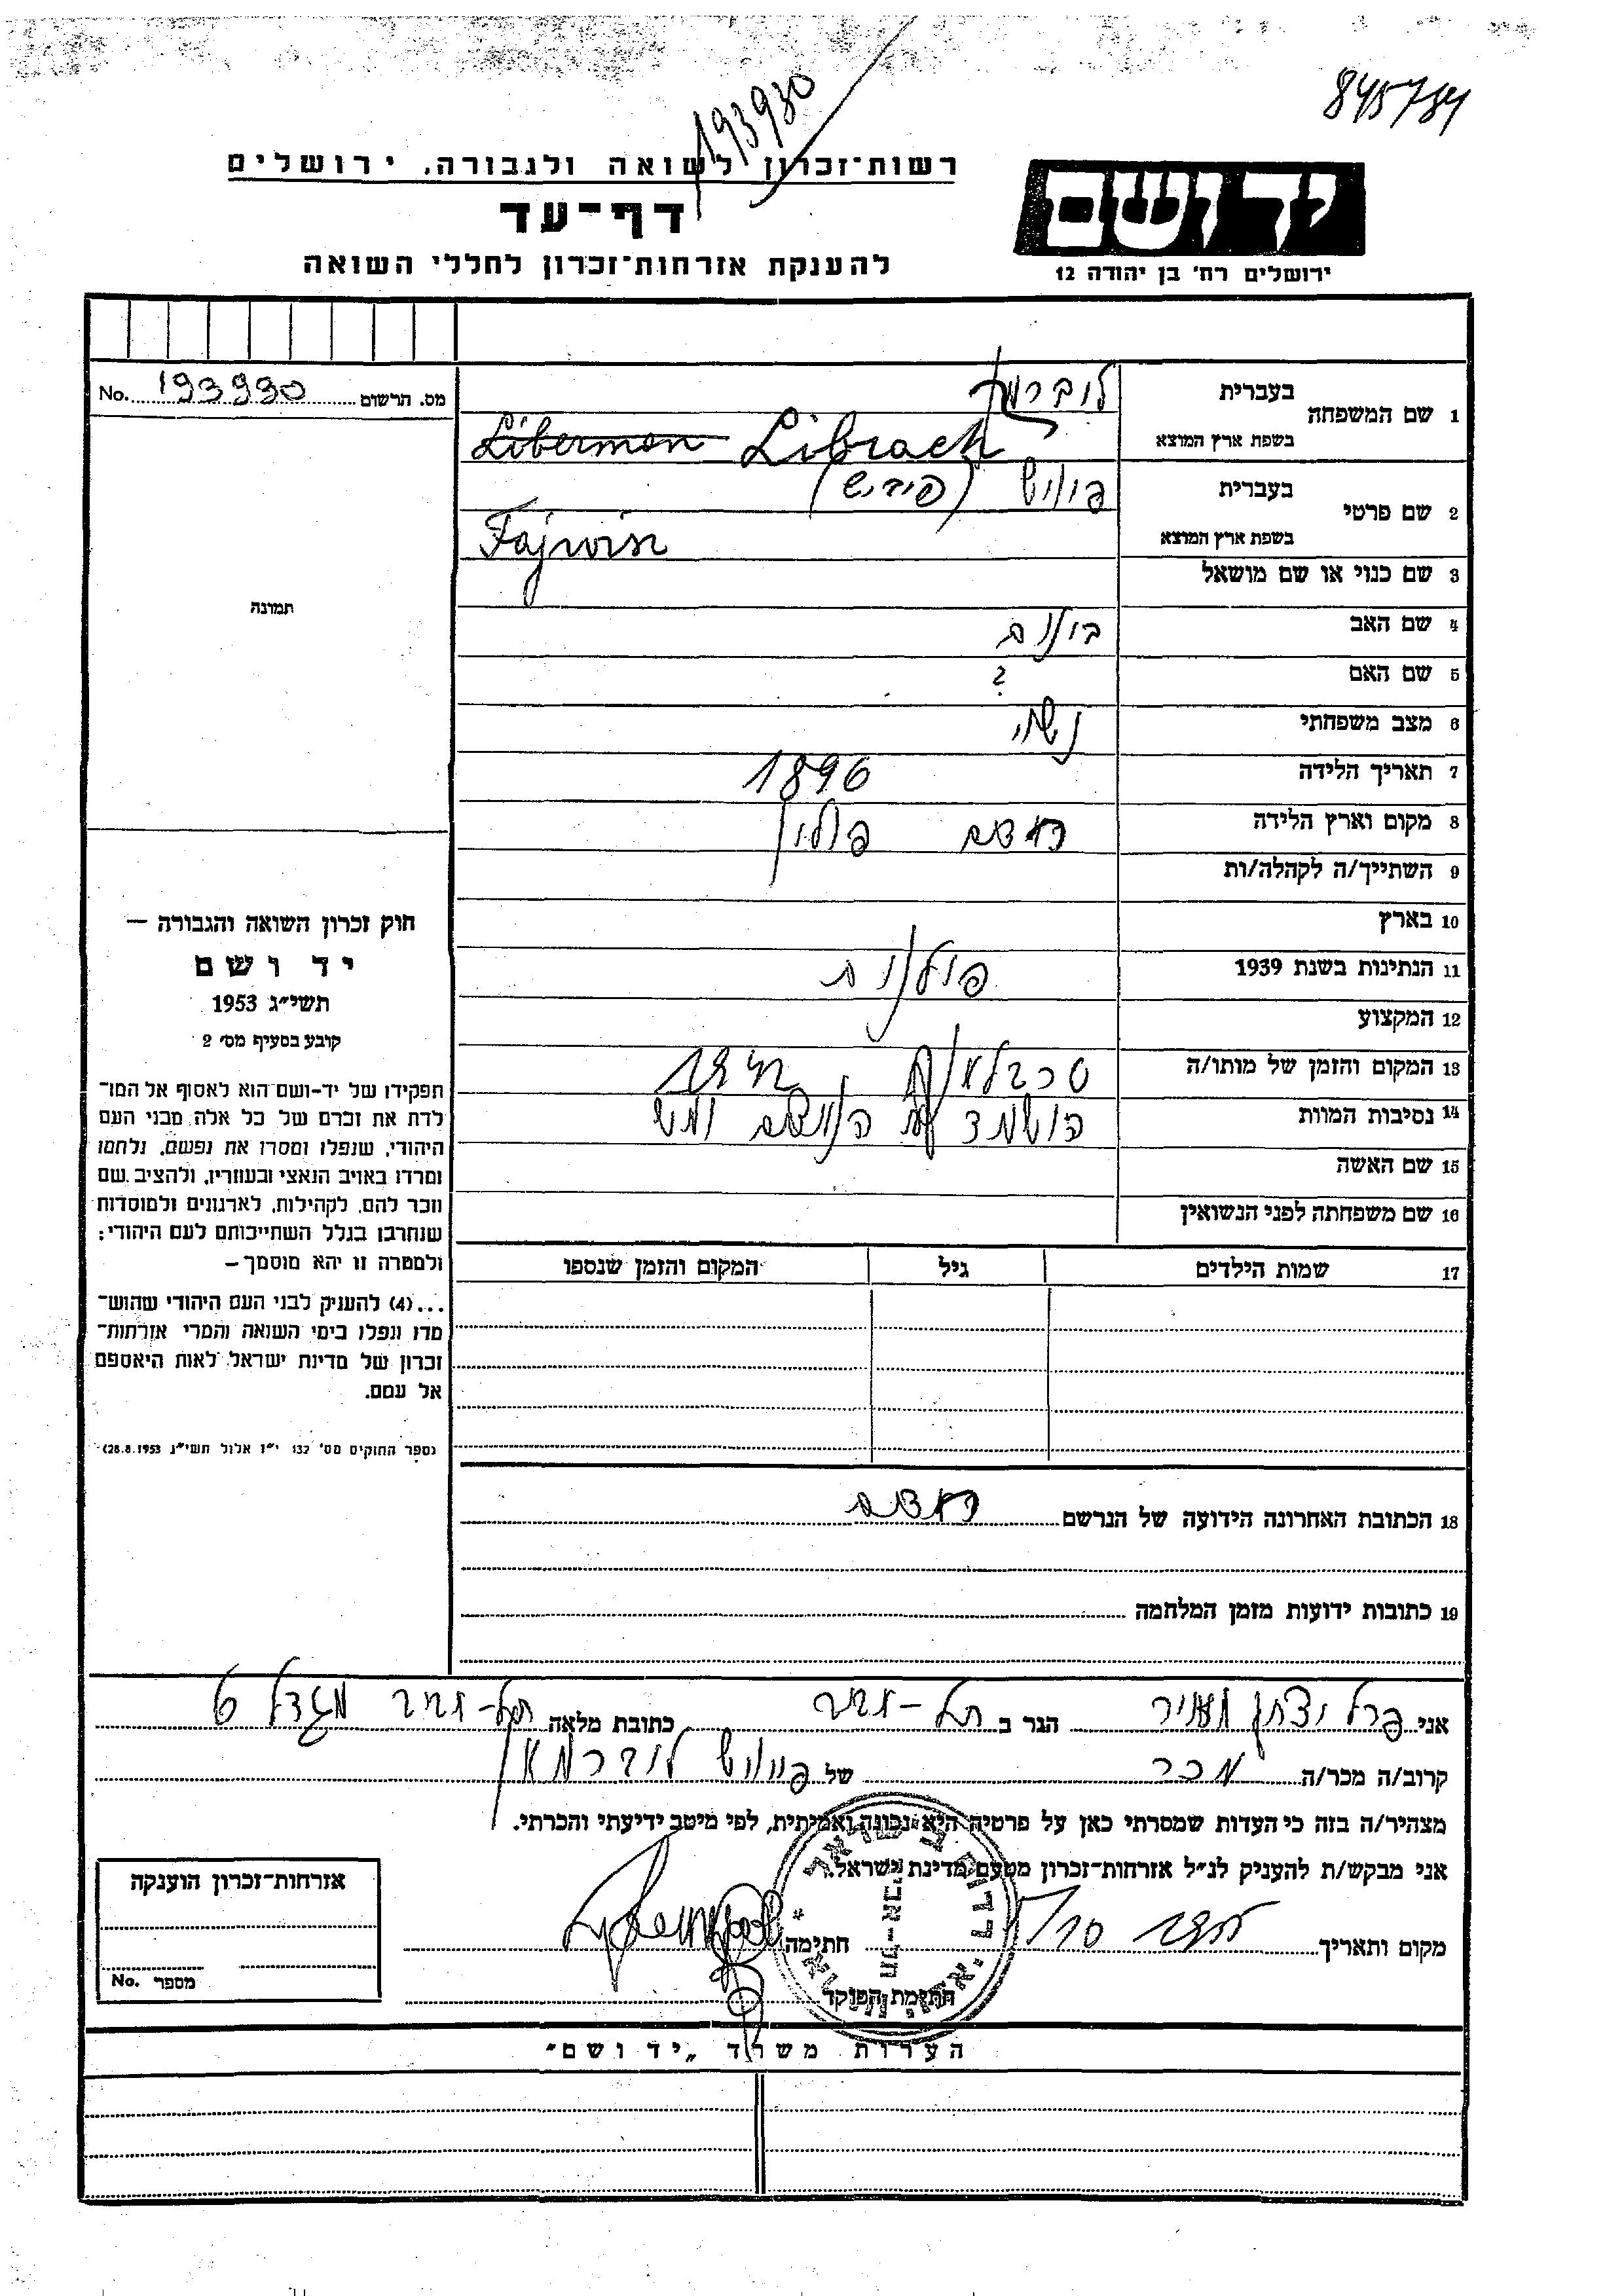 845784
193930
רשות־זכרון לשואה ולגבורה, ירושלים
דף־עד
להענקת אזרחות־זכרון לחללי השואה
יד ושם
ירושלים רח' בן יהודה 12
מס. תרשום 193930 No.
1 שם המשפחה
בעברית
בשפת ארץ המוצא Liberman Librach
2 שם פרטי
בעברית פייויש (פיביש)
בשפת ארץ המוצא Fajwisz
3 שם כנוי או שם מושאל
4 שם האב בונים
5 שם האם ?
6 מצב משפחתי נשוי
7 תאריך הלידה 1896
8 מקום וארץ הלידה פולין
9 השתייך/ה לקהלה/ות
10 בארץ
11 הנתינות בשנת 1939 פולנית
12 המקצוע
13 המקום והזמן של מותו/ה טרבלינקה 1942
14 נסיבות המוות הושמד
15 שם האשה
16 שם משפחתה לפני הנשואין
17 שמות הילדים גיל המקום והזמן שנספו
18 הכתובת האחרונה הידועה של הנרשם
19 כתובות ידועות מזמן המלחמה
תמונה
חוק זכרון השואה והגבורה –
יד ושם
תשי"ג 1953
קובע בסעיף מס' 2
תפקידו של יד-ושם הוא לאסוף אל המו־
לדת את זכרם של כל אלה מבני העם
היהודי, שנפלו ומסרו את נפשם, נלחמו
ומרדו באויב הנאצי ובעוזריו, ולהציב שם
וזכר להם, לקהילות, לארגונים ולמוסדות
שנחרבו בגלל השתייכותם לעם היהודי;
ולמטרה זו יהא מוסמך –
...(4) להעניק לבני העם היהודי שהוש־
מדו ונפלו בימי השואה והמרי אזרחות־
זכרון של מדינת ישראל לאות היאספם
אל עמם.
(ספר החוקים מס' 132 י"ז אלול תשי"ג 28.8.1953)
אני הגר ב תל-אביב כתובת מלאה תל-אביב
קרוב/ה מכר/ה מכר של פייוויש ליברמאן
מצהיר/ה בזה כי העדות שמסרתי כאן על פרטיה היא נכונה ואמיתית, לפי מיטב ידיעתי והכרתי.
אני מבקש/ת להעניק לנ"ל אזרחות־זכרון מטעם מדינת ישראל.
מקום ותאריך חתימה
חתימת הפוקד
אזרחות־זכרון הוענקה
מספר No.
הערות משרד „יד ושם"